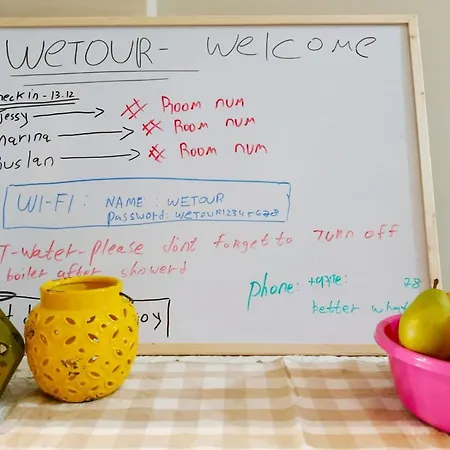 WETOUR - Welcome
heck in - 13.12
jessy → # Room num
marina → # Room num
uslan → # Room num
WI-FI: NAME: WETOUR
Password: WETOUR12345678
T-water-please dont forget to turn off
boiler after showerd
phone: 78
better what
oy